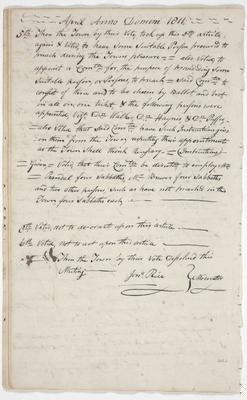 April Anno Domini 1811
5th Then the Town by their Vote took up this 5th article
again & Voted to have Some Suitable Person procured to
preach during the Town pleasure = also voted to
appoint a Comtee for the purpose of providing Some
Suitable person, or Persons to preach — Said Comtee to
consist of three and to be chosen by Ballot and brot
in all on one ticket & the following persons were
appointed, Viz. Walker, Haynes &
— also Voted that Said Comtee have Such Instructions given
on them from the Town respecting their appointment
as the Town Shall think Necessary. — (Instructions)
— Given — Voted that their Comtee be directed to employ the
four Sabbaths, Mr. four Sabbaths
and two other persons, Such as have not preached in the
Town four Sabbaths each
Voted, not to act upon this article
6th Voted not to act upon this article
Then the Town by their Vote Dissolved this
Meeting
Jona. Rice } Moderator